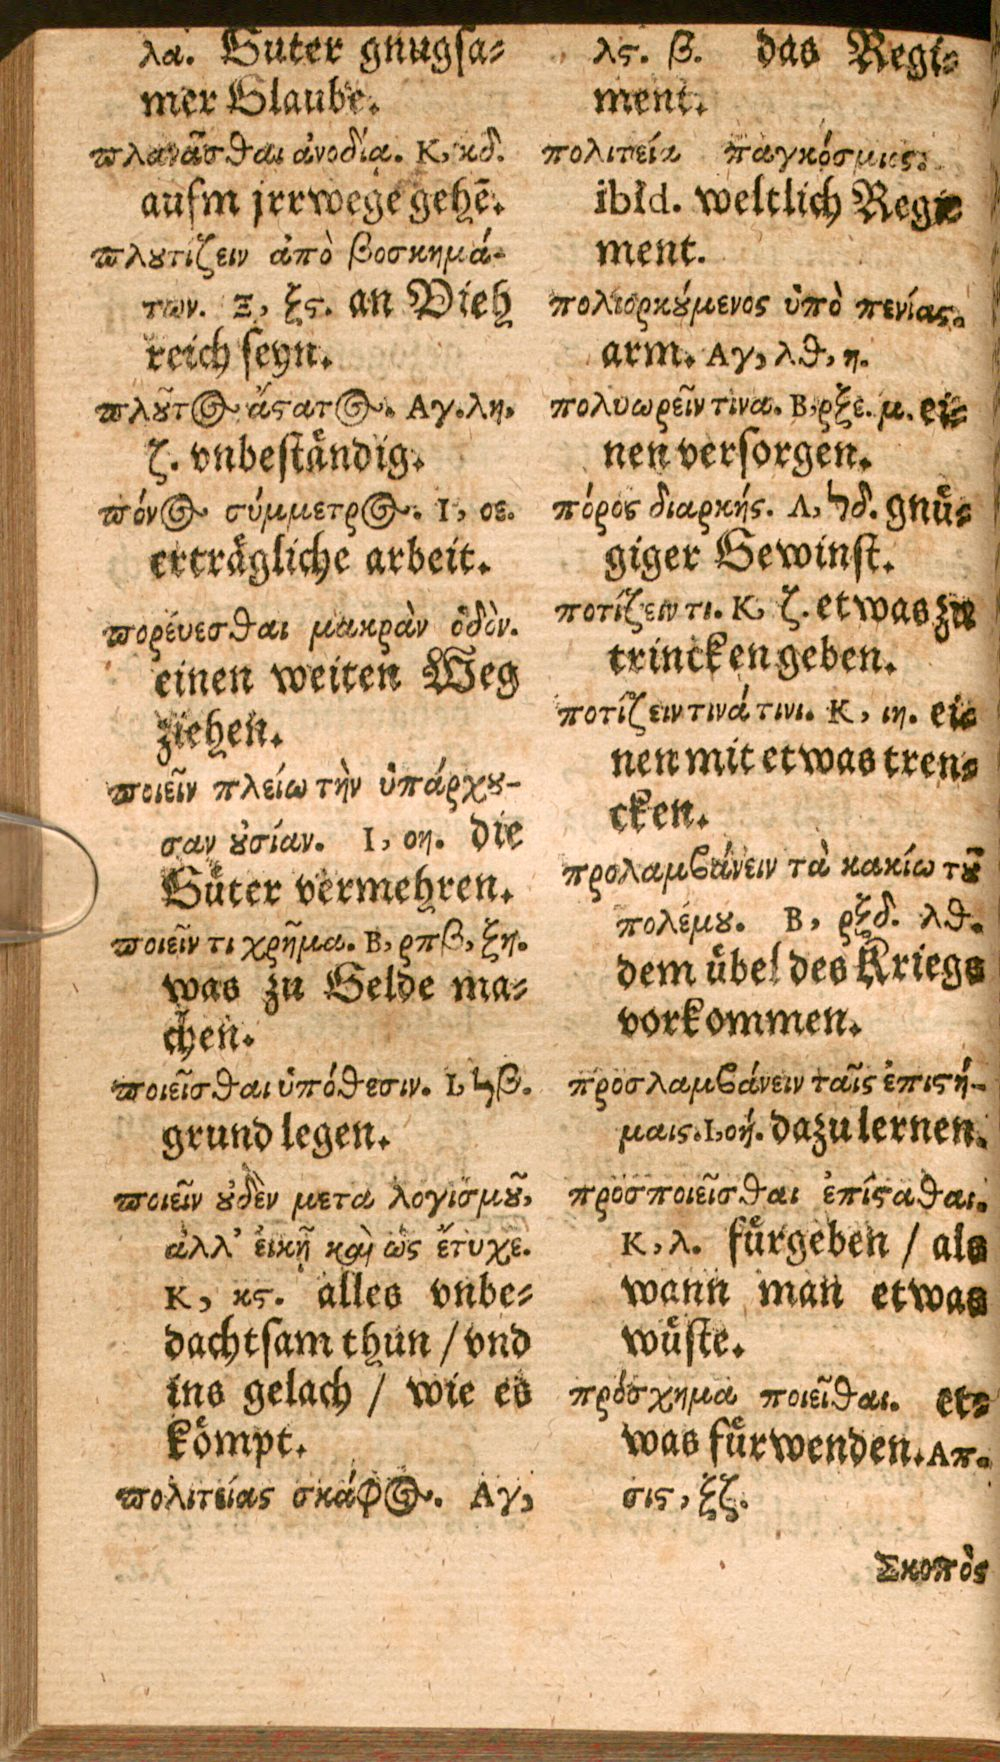 λα. Guter gnugsa-
mer Glaube.
πλανᾶσθαι ἀνοδίᾳ. Κ, κδ.
aufm jrrwege gehē.
πλȣτίζειν ἀπὸ βοσκημά-
των. Ξ, ξς. an Vieh
reich seyn.
πλȣ͂τος ἄϛατος. Αγ. λη.
ζ. vnbeståndig.
πόνος σύμμετρος. Ι, οε.
ertrågliche arbeit.
πορέυεσθαι μακρὰν ὁδὸν.
einen weiten Weg
ziehen.
ποιεῖν πλείω τὴν ὑπάρχȣ-
σαν ȣ̓σίαν. Ι, οη. die
Gůter vermehren.
ποιεῖν τι χρῆμα. Β, ρπβ, ξη.
was zu Gelde ma-
chen.
ποιεῖσθαι ὑπόθεσιν. Ι, ϟβ.
grund legen.
ποιεῖν ȣ̓δὲν μετα λογισμȣ͂,
ἀλλ' ἐικῇ καὶ ὡς ἔτυχε.
Κ, κς. alles vnbe-
dachtsam thun / vnd
ins gelach / wie es
kömpt.
πολιτείας σκάφος. Αγ,
λς. β. das Regi-
ment.
πολιτεία παγκόσμιος.
ibid. weltlich Regi-
ment.
πολιορκȣ́μενος ὑπὸ πενίας.
arm. Αγ, λθ, η.
πολυωρεῖν τινα. Β, ρξε. μ. ei-
nen versorgen.
πόρος διαρκής. Λ, ϟδ. gnů-
giger Gewinst.
ποτίζειν τι. Κ, ζ. etwas zu
trincken geben.
ποτίζειν τινά τινι. Κ, ιη. ei-
nen mit etwas tren-
cken.
προλαμβάνειν τὰ κακίω τȣ͂
πολέμȣ. Β, ρξδ. λθ.
dem ůbel des Kriegs
vorkommen.
προσλαμβάνειν ταῖς ἐπιϛή-
μαις. Ι, οή. dazu lernen.
προσποιεῖσθαι ἐπίϛαθαι.
Κ, λ. fůrgeben / als
wann man etwas
wůste.
πρόσχημα ποιεῖθαι. et-
was fůrwenden. Απ.
σις, ξζ.
Σκοπὸς